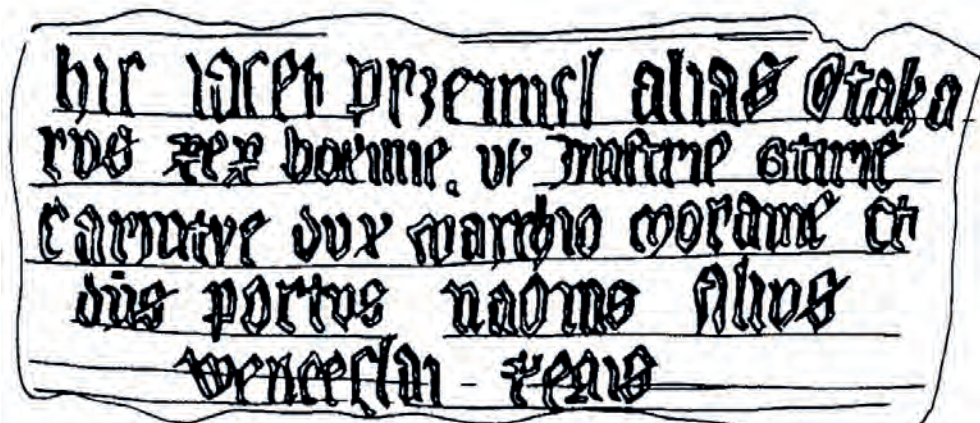 hic iacet przemisl alias Otaka
rvs rex boemie. v austrie stirie
carintye dvx marchio moravie et
dns portvs naonis filivs
wenceslai - regis